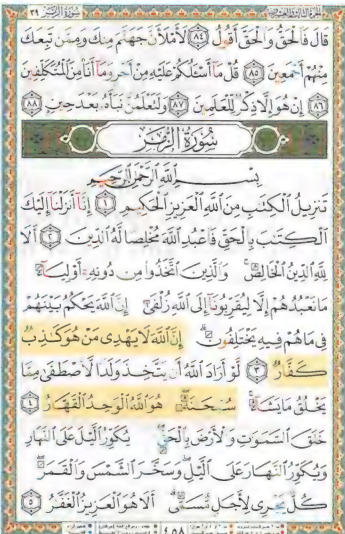 سورة الزمر ٣٩
قَالَ فَالْحَقُّ وَالْحَقَّ أَقُولُ ٨٤ لَأَمْلَأَنَّ جَهَنَّمَ مِنكَ وَمِمَّن تَبِعَكَ
مِنْهُمْ أَجْمَعِينَ ٨٥ قُلْ مَا أَسْـَٔلُكُمْ عَلَيْهِ مِنْ أَجْرٍ وَمَا أَنَا مِنَ الْمُتَكَلِّفِينَ
٨٦ إِنْ هُوَ إِلَّا ذِكْرٌ لِّلْعَـٰلَمِينَ ٨٧ وَلَتَعْلَمُنَّ نَبَأَهُ بَعْدَ حِينٍ ٨٨
سُورَةُ الزُّمَرِ
بِسْمِ اللَّهِ الرَّحْمَـٰنِ الرَّحِيمِ
تَنزِيلُ الْكِتَـٰبِ مِنَ اللَّهِ الْعَزِيزِ الْحَكِيمِ ١ إِنَّا أَنزَلْنَا إِلَيْكَ
الْكِتَـٰبَ بِالْحَقِّ فَاعْبُدِ اللَّهَ مُخْلِصًا لَّهُ الدِّينَ ٢ أَلَا
لِلَّهِ الدِّينُ الْخَالِصُ وَالَّذِينَ اتَّخَذُوا مِن دُونِهِ أَوْلِيَاءَ
مَا نَعْبُدُهُمْ إِلَّا لِيُقَرِّبُونَا إِلَى اللَّهِ زُلْفَىٰ إِنَّ اللَّهَ يَحْكُمُ بَيْنَهُمْ
فِي مَا هُمْ فِيهِ يَخْتَلِفُونَ إِنَّ اللَّهَ لَا يَهْدِي مَنْ هُوَ كَـٰذِبٌ
كَفَّارٌ ٣ لَّوْ أَرَادَ اللَّهُ أَن يَتَّخِذَ وَلَدًا لَّاصْطَفَىٰ مِمَّا
يَخْلُقُ مَا يَشَاءُ سُبْحَـٰنَهُ هُوَ اللَّهُ الْوَٰحِدُ الْقَهَّارُ ٤
خَلَقَ السَّمَـٰوَٰتِ وَالْأَرْضَ بِالْحَقِّ يُكَوِّرُ الَّيْلَ عَلَى النَّهَارِ
وَيُكَوِّرُ النَّهَارَ عَلَى الَّيْلِ وَسَخَّرَ الشَّمْسَ وَالْقَمَرَ
كُلٌّ يَجْرِي لِأَجَلٍ مُّسَمًّى أَلَا هُوَ الْعَزِيزُ الْغَفَّـٰرُ ٥
٤٥٨